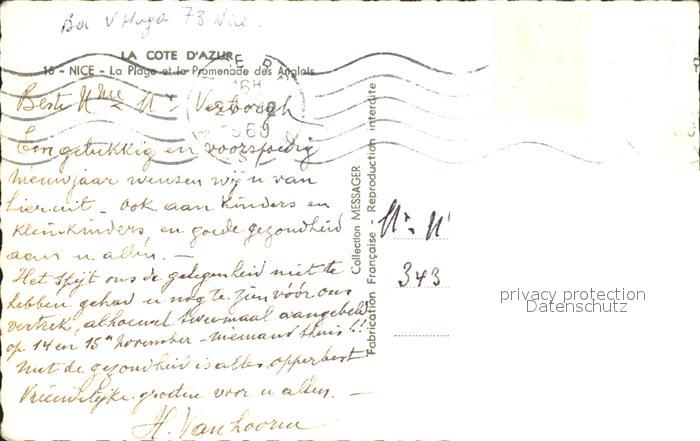 Bd V Hugo 73 Nice.
LA COTE D'AZUR
15 - NICE - La Plage et la Promenade des Anglais
16H
1960
Beste Mme Mr Verborgh
Een gelukkig en voorspoedig
nieuwjaar wensen wij u van
hieruit. Ook aan kinders en
kleinkinders, en goede gezondheid
aan u allen. —
Het spijt ons de gelegenheid niet te
hebben gehad u nog te zien vóór ons
vertrek, alhoewel tweemaal aangebeld
op 14 en 15n november - niemand thuis!!
Met de gezondheid is alles opperbest
Vriendelijke groeten voor u allen. —
H. Vanhoorne
Collection MESSAGER
Fabrication Française - Reproduction interdite
Mr. M
343
privacy protection
Datenschutz